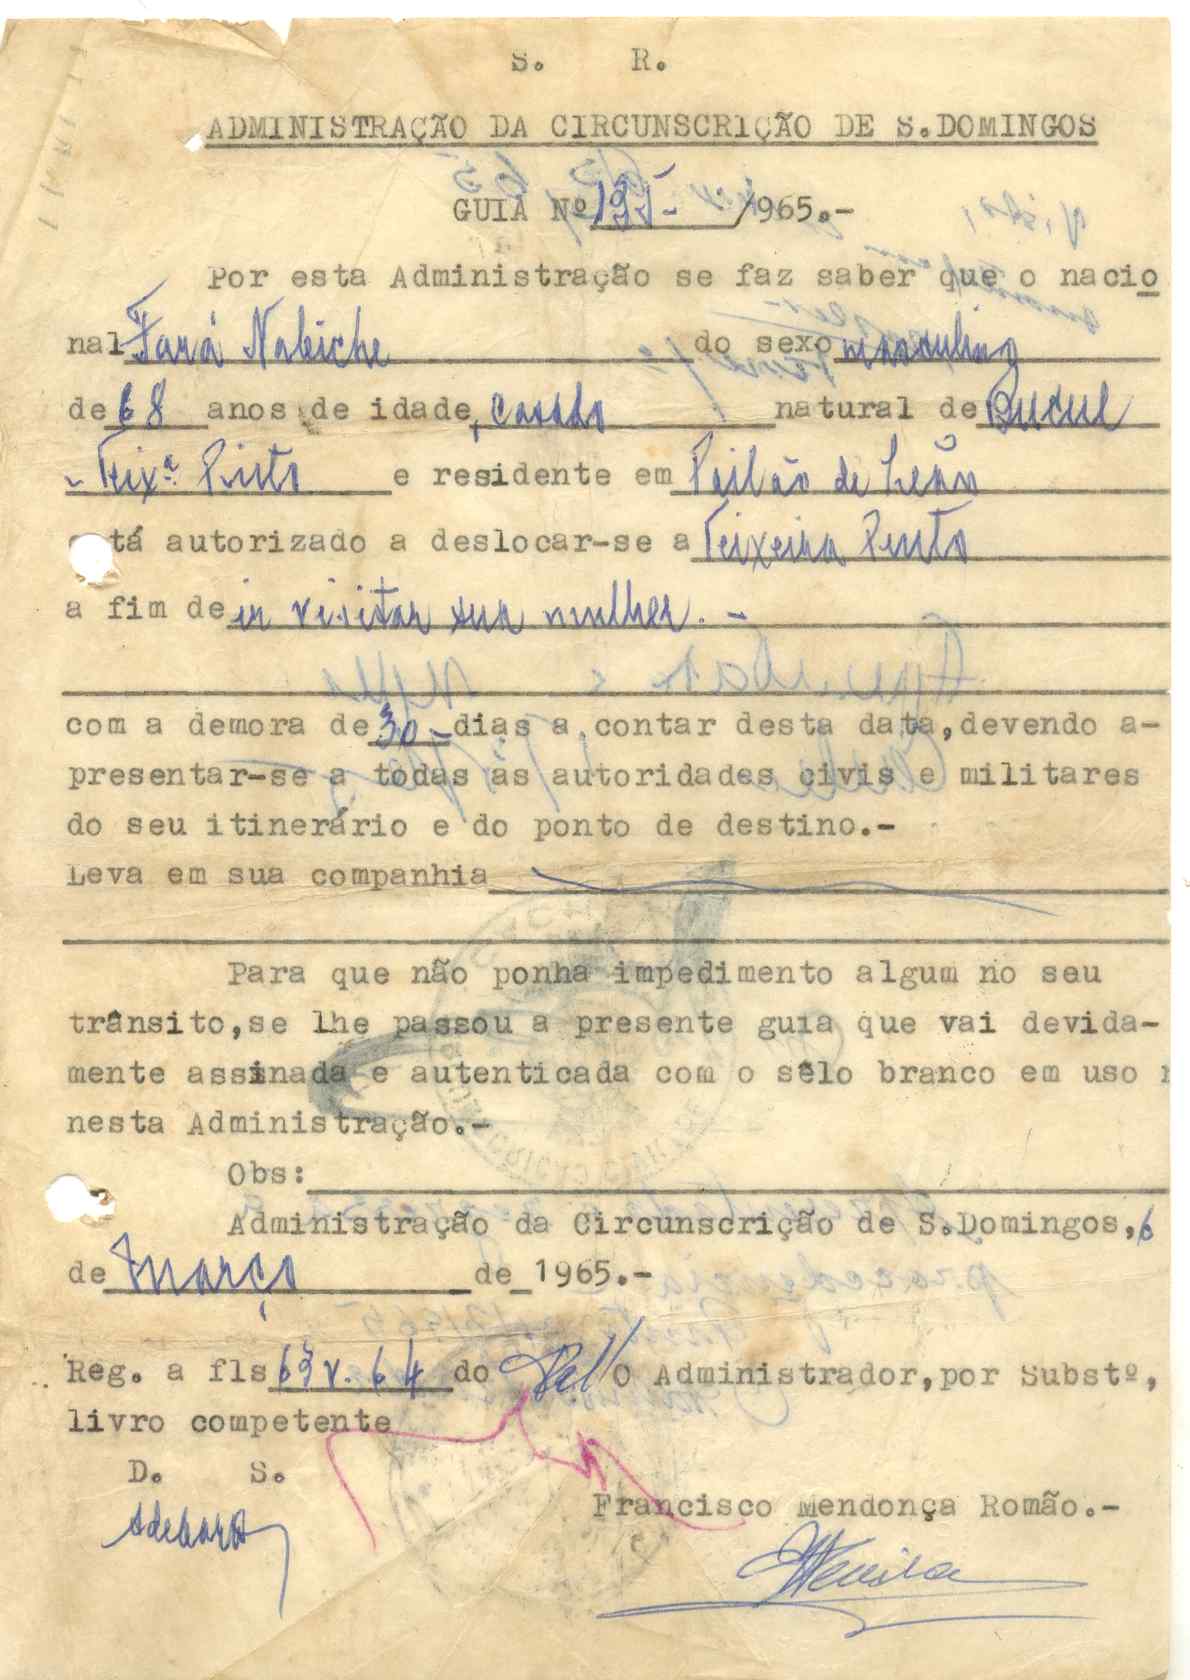 S. R.
ADMINISTRAÇÃO DA CIRCUNSCRIÇÃO DE S.DOMINGOS
GUIA Nº 195- /965.-
Por esta Administração se faz saber que o nacio
nal Fará Nabiche do sexo masculino
de 68 anos de idade, casado natural de Bucul
- Teixª. Pinto e residente em Pailão de Leão
está autorizado a deslocar-se a Teixeira Pinto
a fim de ir visitar sua mulher. -
com a demora de 30 - dias a contar desta data, devendo a-
presentar-se a todas as autoridades civis e militares
do seu itinerário e do ponto de destino.-
Leva em sua companhia
Para que não ponha impedimento algum no seu
trânsito,se lhe passou a presente guia que vai devida-
mente assinada e autenticada com o sêlo branco em uso n
nesta Administração.-
Obs:
Administração da Circunscrição de S.Domingos, 6
de Março de 1965.-
Reg. a fls 63 v. 64 do O Administrador,por Substº,
livro competente
D. S.
Francisco Mendonça Romão.-